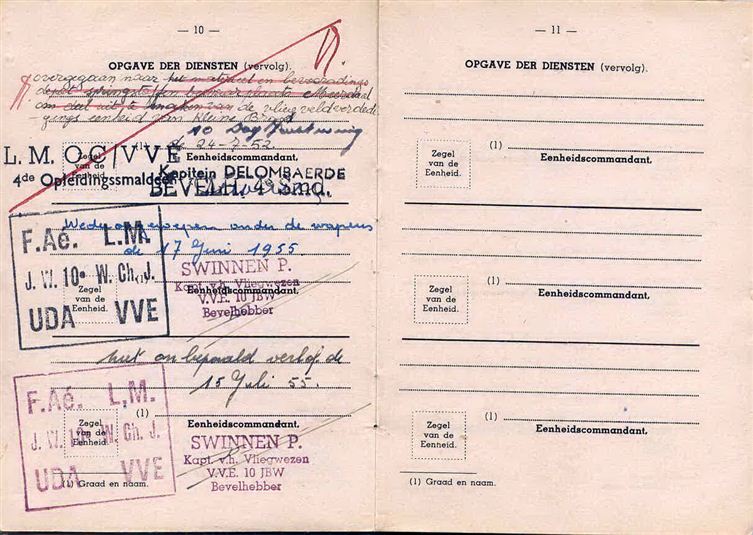 — 10 —
OPGAVE DER DIENSTEN (vervolg).
overgegaan naar het materieel en bevoorradings
depot springstoffen
om deel uit te maken van de vliegveldverdedi
-gings eenheid van Kleine Brogel
10 Dag
de 24-7-52
L.M. OC/VVE
Zegel
van de
Eenheid.
(1)
Eenheidscommandant.
4de Opleidingssmaldeel
Kapitein DELOMBAERDE
BEVELH. 4e Smd.
Weder opgeroepen onder de wapens
de 17 Juni 1955.
F.Aé. L.M.
J. W. 10e W. Ch. J.
UDA VVE
Zegel
van de
Eenheid.
SWINNEN P.
Kapt. v.h. Vliegwezen
Eenheidscommandant.
V.V.E. 10 JBW
Bevelhebber
Met onbepaald verlof de
15 Juli 55.
F.Aé. L.M.
J. W. 10e W. Ch. J.
UDA VVE
Zegel
van de
Eenheid.
(1)
Eenheidscommandant.
SWINNEN P.
Kapt. v.h. Vliegwezen
V.V.E. 10 JBW
Bevelhebber
(1) Graad en naam.
— 11 —
OPGAVE DER DIENSTEN (vervolg).
Zegel
van de
Eenheid.
(1)
Eenheidscommandant.
Zegel
van de
Eenheid.
(1)
Eenheidscommandant.
Zegel
van de
Eenheid.
(1)
Eenheidscommandant.
(1) Graad en naam.